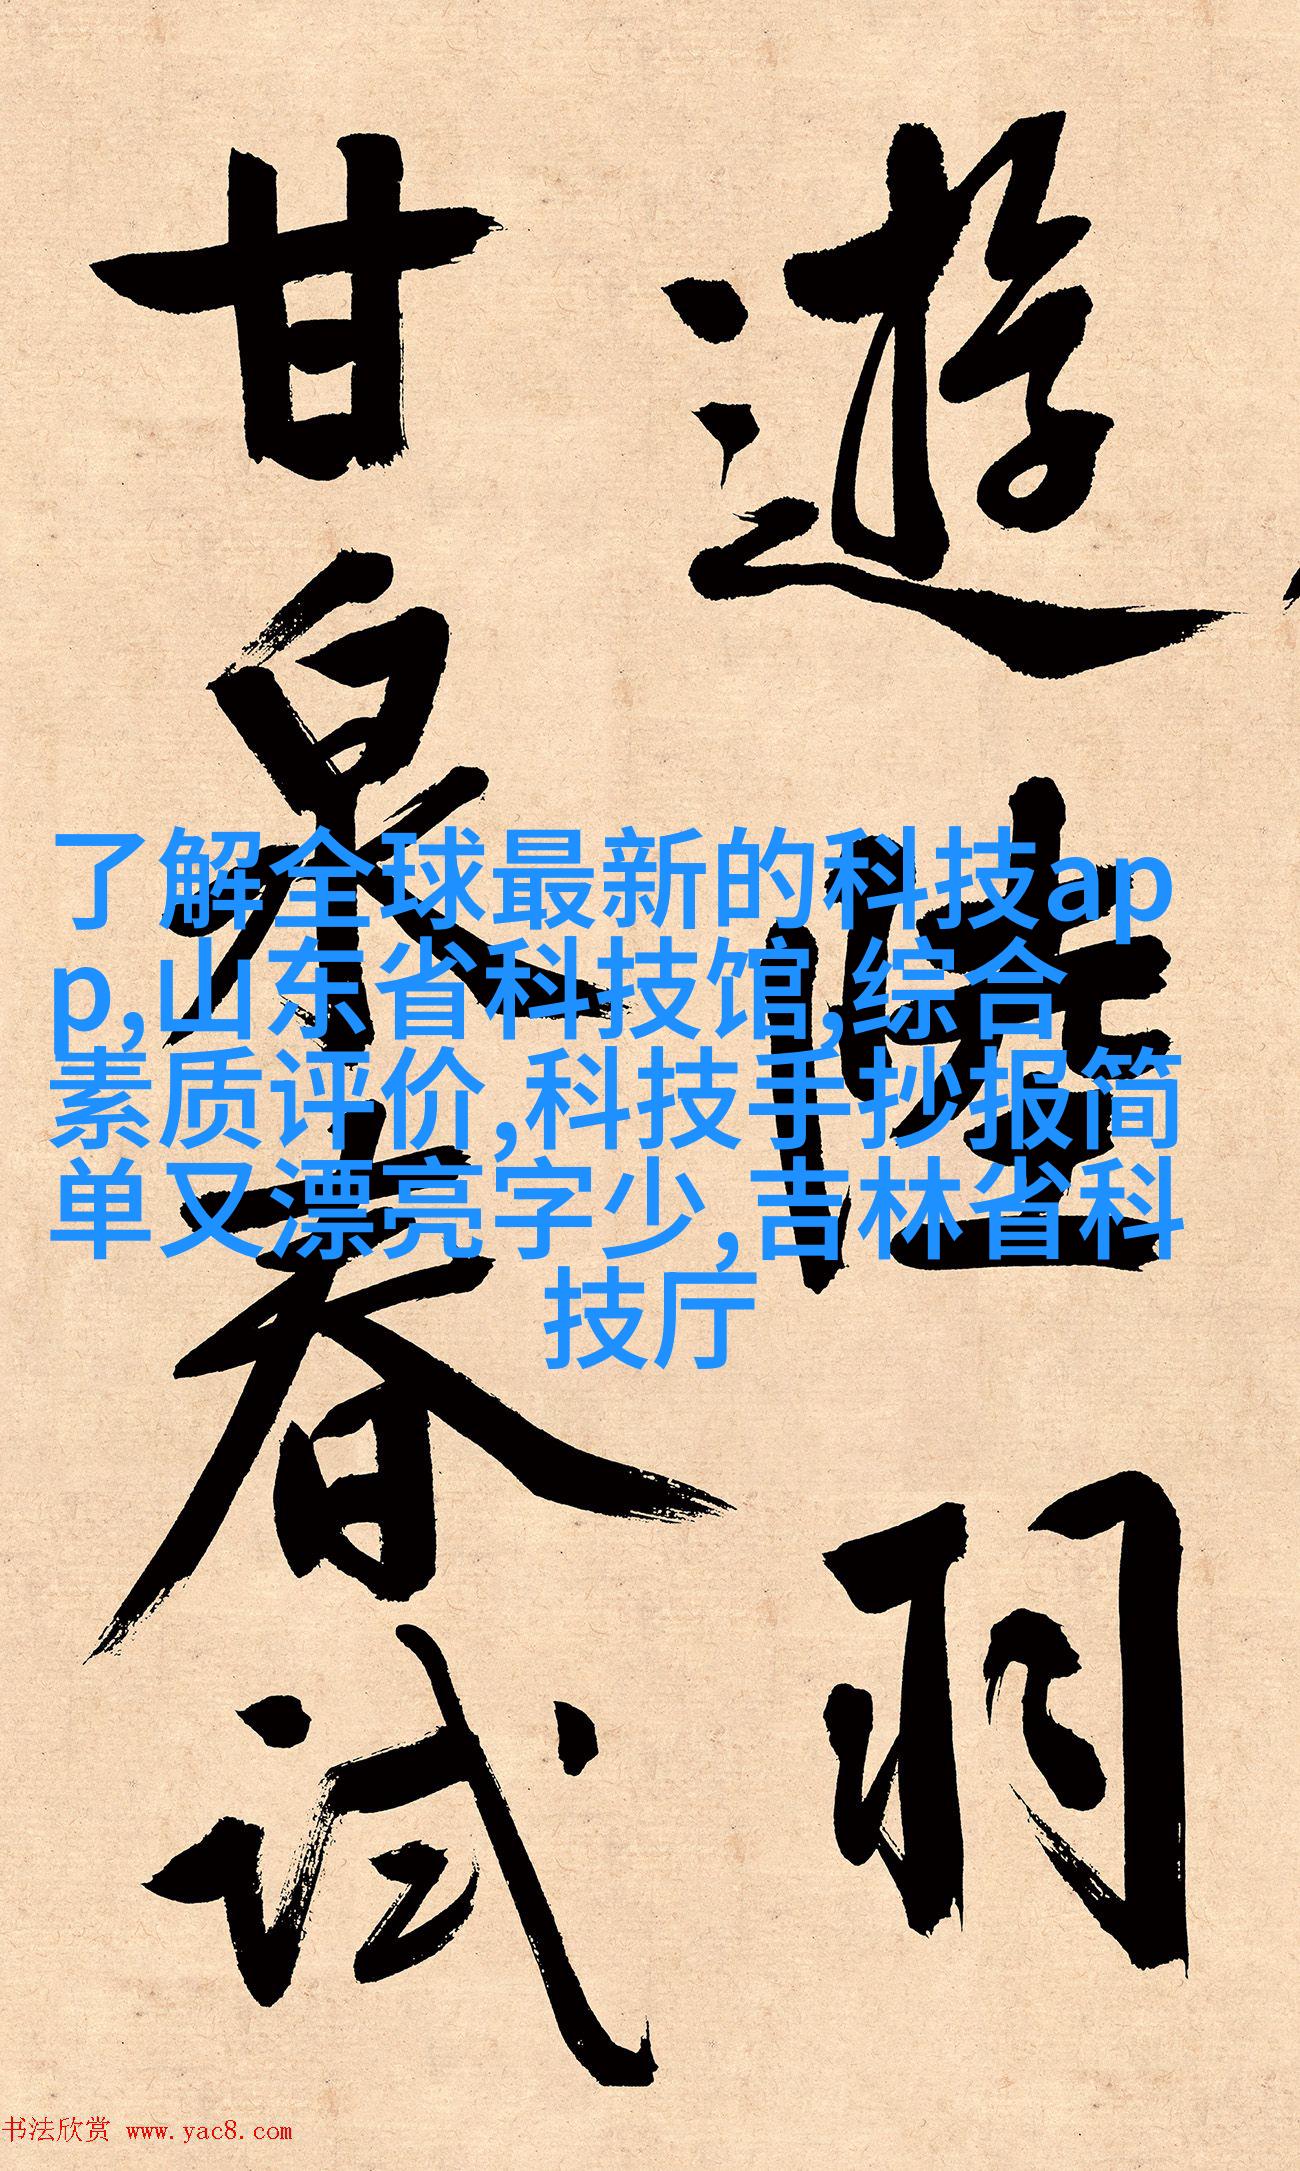 遊陸羽
甘泉春试
了解全球最新的科技ap
p,山东省科技馆,综合
素质评价,科技手抄报简
单又漂亮字少,吉林省科
技厅
书法欣赏 www.yac8.com